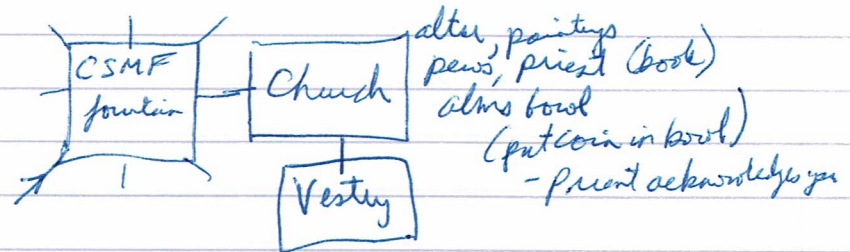 CSMF
fountain
Church
Vestry
altar, paintings
pews, priest (book)
alms bowl
(put coin in bowl)
- Priest acknowledges you